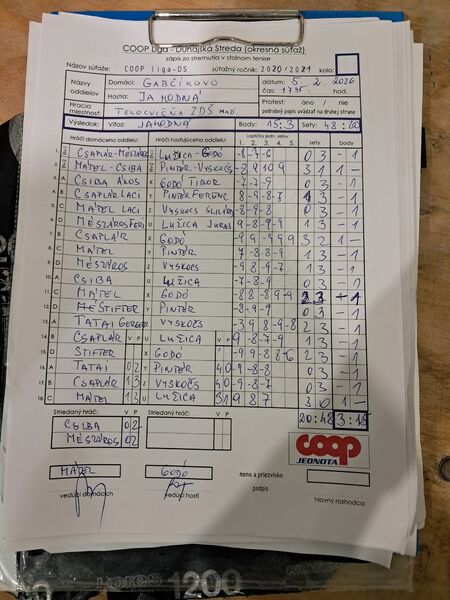 COOP Liga - Dunajská Streda (okresná súťaž)
zápis zo stretnutia v stolnom tenise
Názov súťaže: COOP liga-DS súťažný ročník: 2020/2021 kolo:
Názvy oddielov Domáci: GABČÍKOVO dátum
Hostia: JAHODNÁ čas: 17
Hracia miestnosť: TELOCVIČŇA ZDŠ MAĎ. Protest: áno / nie
podrobný popis uvádzať na druhej strane
Výsledok: Víťaz: JAHODNÁ Body: 15:3 Sety: 48:20
Hráči domáceho oddielu Hráči hosťujúceho oddielu loptičky jedn. setov sety body
1. 2. 3. 4. 5.
CSAPLÁR-MÉSZÁROS LUŽICA-GODÓ -8 -7 -6 0 3 - 1
2. MÁTEL-CSIBA PINTÉR-VYSKOČS -8 9 10 9 3 1 1 -
3. A CSIBA ÁKOS X GODÓ TIBOR -7 -7 -9 0 3 - 1
4. B CSAPLÁR LACI Y PINTÉR FERENC 8 -9 -8 -7 1 3 - 1
5. C MÁTEL LACI Z VYSKOČS -8 -9 -8 0 3 - 1
6. D MÉSZÁROS FERI U LUŽICA JURAJ 9 -8 -9 -9 1 3 - 1
7. B CSAPLÁR X GODÓ 9 9 -9 -9 9 3 2 1 -
8. C MÁTEL Y PINTÉR 1 3 - 1
9. D MÉSZÁROS Z VYSKOČS -9 8 -9 -7 1 3 - 1
10. A CSIBA U LUŽICA -7 -8 -9 0 3 - 1
11. C MÁTEL X GODÓ 2 3 1
12. D STIFTER Y PINTÉR -8 -9 -9 0 3 - 1
13. A TATAI GERGELY Z VYSKOČS -3 9 8 -9 -8 2 3 - 1
14. B CSAPLÁR V P U LUŽICA V P 9 -8 -7 -9 1 3 - 1
15. D STIFTER X GODÓ -9 9 -8 8 -6 2 3 - 1
16. A TATAI 0 2 Y PINTÉR 4 0 -9 -8 -8 0 3 - 1
17. B CSAPLÁR 1 3 Z VYSKOČS 4 0 -9 -8 -7 0 3 - 1
18. C MÁTEL 1 3 U LUŽICA 3 1 9 8 7 3 0 1 -
Striedaný hráč: V P Striedaný hráč: V P 20:48 3:15
CSIBA 0 2
MÉSZÁROS 0 2
coop
JEDNOTA
MÁTEL GODÓ meno a priezvisko
vedúci domácich vedúci hostí podpis hlavný rozhodca
kores 1200